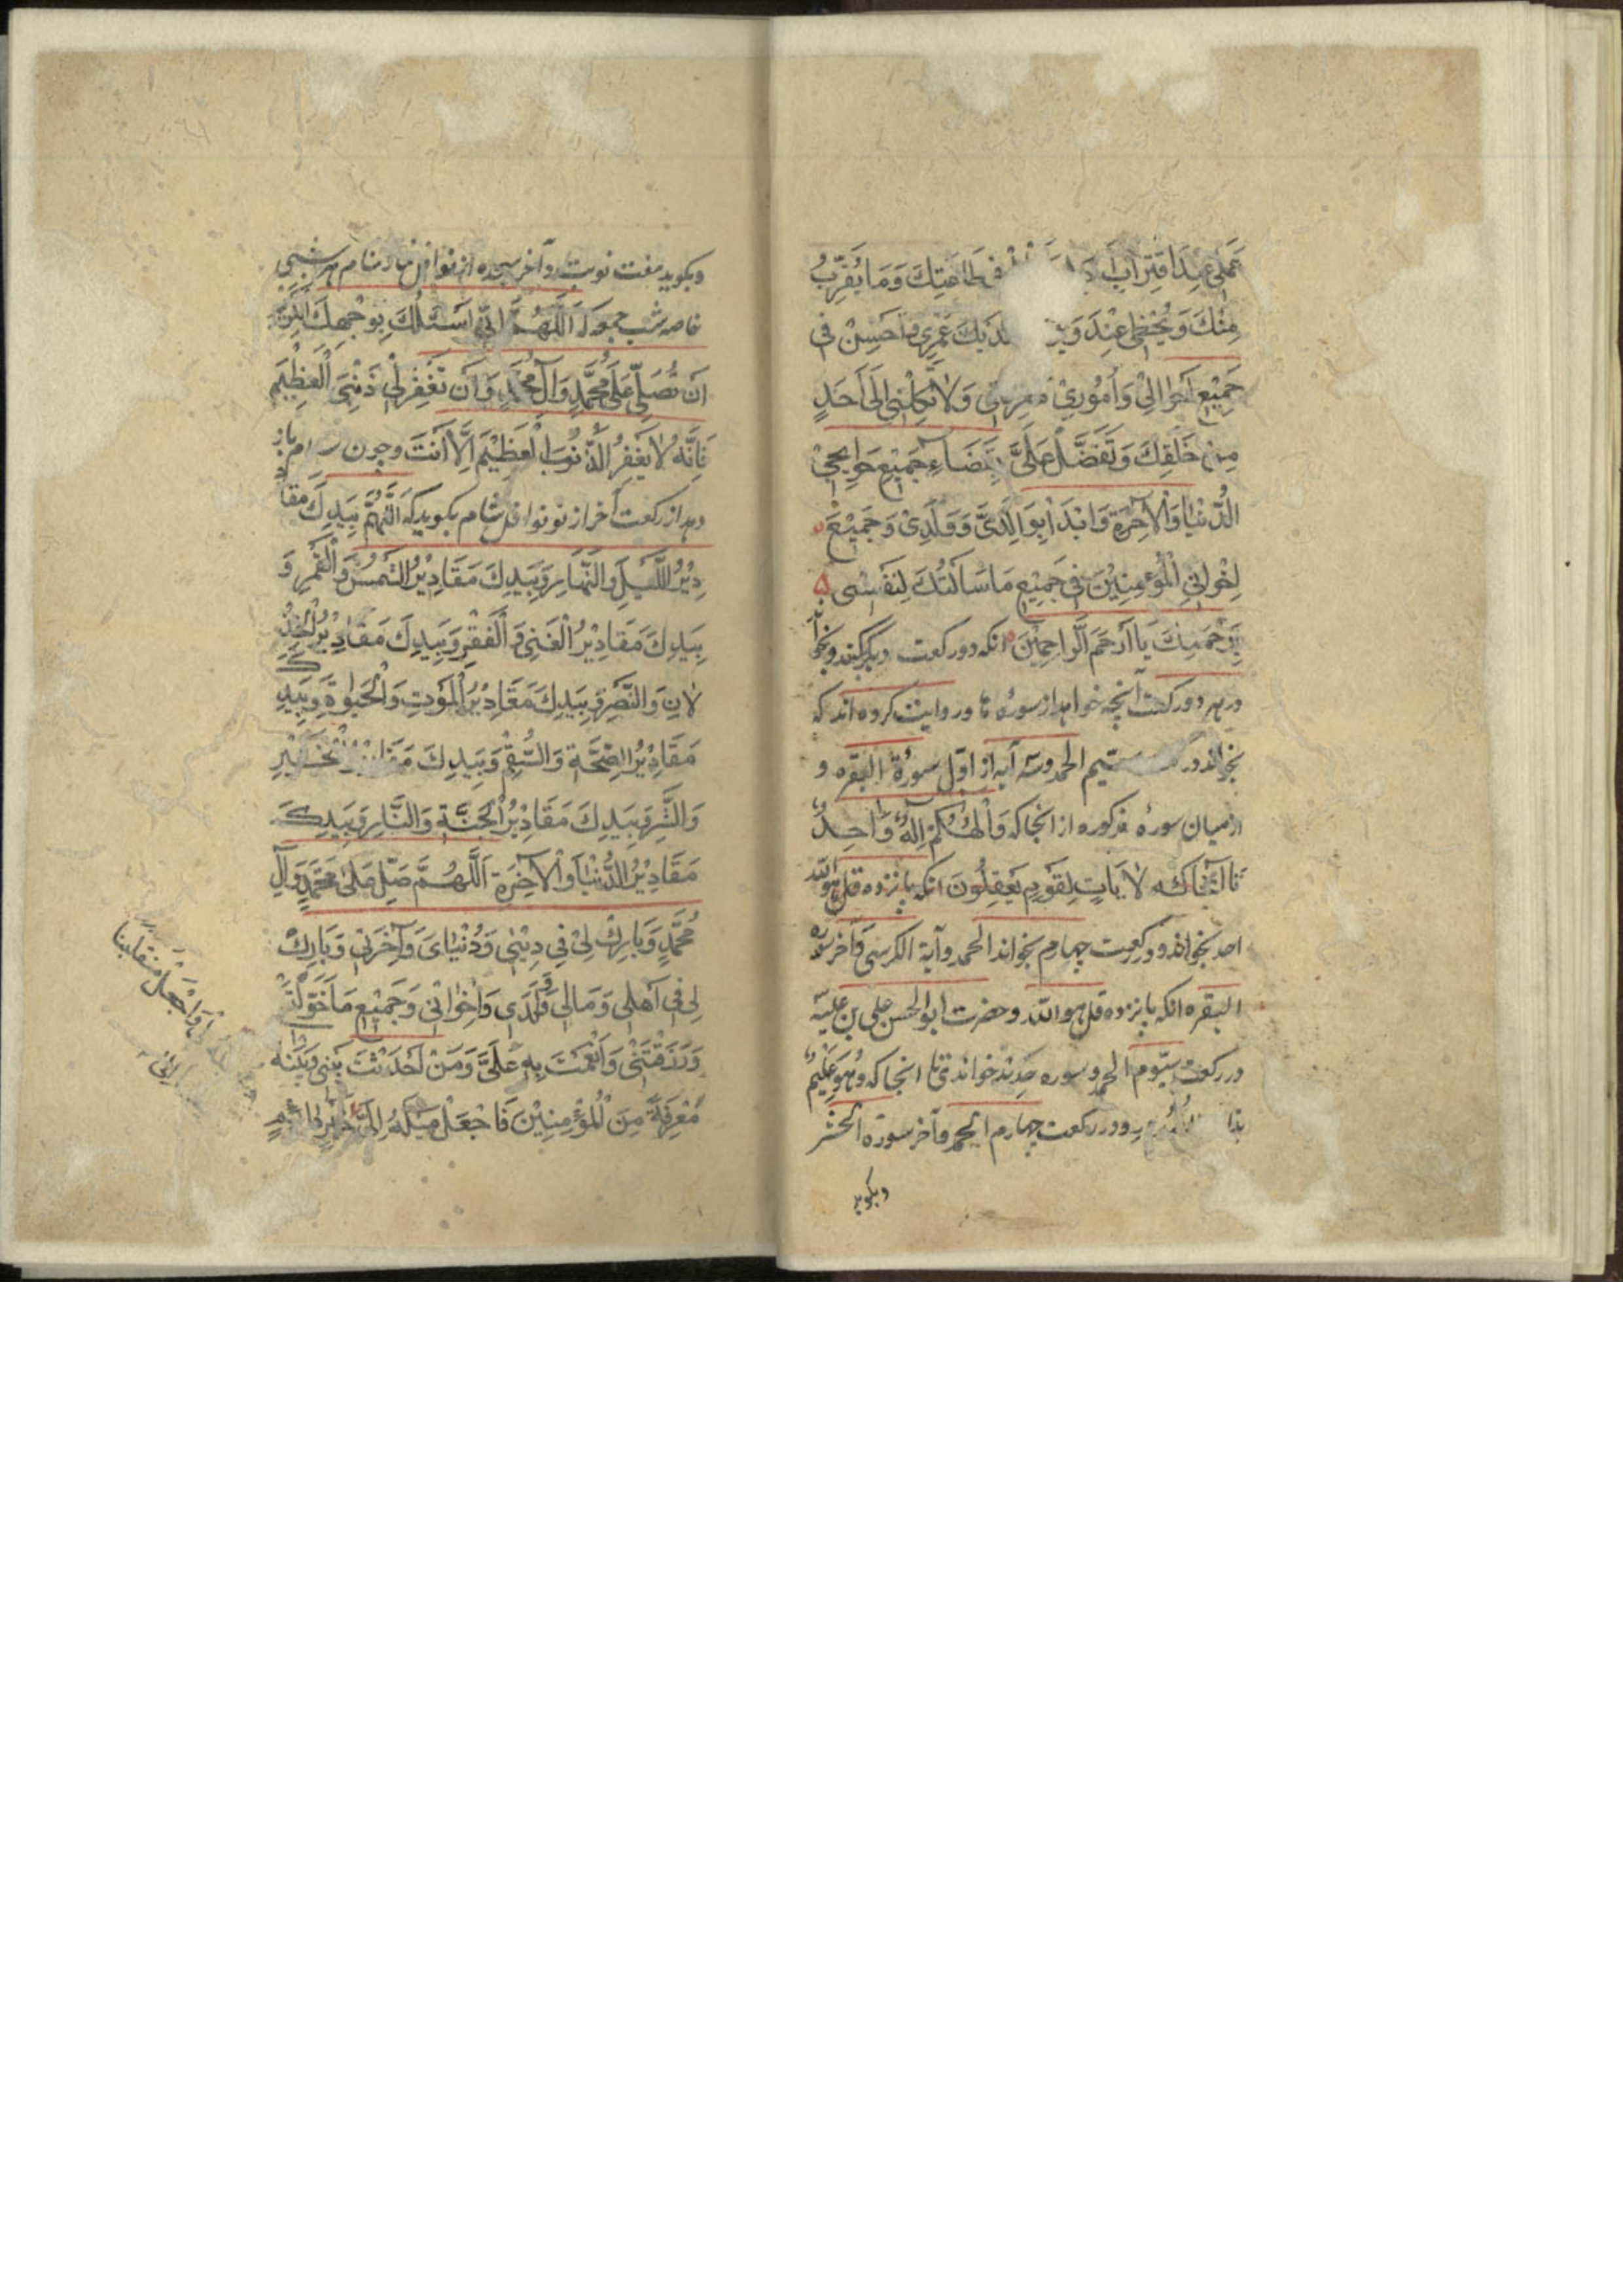 عَمَلِي عِنْدَ اقْتِرَابِ فِي طَاعَتِكَ وَمَا يُقَرِّبُ
مِنْكَ وَيُحْظِي عِنْدَكَ عُمْرِي وَأَحْسِنْ فِي
جَمِيْعِ أَحْوَالِيْ وَأُمُوْرِيْ مَعْرِفَتِي وَلَا تَكِلْنِي إِلَى أَحَدٍ
مِنْ خَلْقِكَ وَتَفَضَّلْ عَلَيَّ بِقَضَاءِ جَمِيْعِ حَوَائِجِيْ
الدُّنْيَا وَالْآخِرَةِ وَابْدَأْ بِوَالِدَيَّ وَوَلَدِيْ وَجَمِيْعِ
إِخْوَانِي الْمُؤْمِنِيْنَ فِي جَمِيْعِ مَا سَأَلْتُكَ لِنَفْسِي
بِرَحْمَتِكَ يَا أَرْحَمَ الرَّاحِمِيْنَ انکه دو رکعت دیگر بکند و بخواند
در هر دو رکعت آنچه خواهد از سوره ها و روایت کرده اند که
بخواند در الحمد وسه آیه از اوّل سورة البقره و
از میان سورهٔ مذکوره از انجا که وَإِلٰهُكُمْ إِلٰهٌ وَّاحِدٌ
تا آنجا که لَآيَاتٍ لِقَوْمٍ يَعْقِلُونَ انکه پانزده قل هو الله
احد بخواند و در رکعت چهارم بخواند الحمد وآية الكرسى وآخر سوره
البقره انکه پانزده قل هو الله و حضرت ابو الحسن علی بن علیه
در رکعت سیّوم الحمد و سوره حدید خواندی تا انجا که وَهُوَ عَلِيْمٌ
بذات الصُّدُورِ و در رکعت چهارم الحمد وآخر سورة الحشر
وبکوید
وبکوید هفت نوبت در آخر سجده از نوافل نماز شام هر شبی
خاصه شب جمعه که اَللّٰهُمَّ اِنِّي اَسْئَلُكَ بِوَجْهِكَ الْكَرِيْمِ
اَنْ تُصَلِّيَ عَلَى مُحَمَّدٍ وَآلِ مُحَمَّدٍ وَاَنْ تَغْفِرَ لِيْ ذَنْبِيَ الْعَظِيْمَ
فَاِنَّهُ لَا يَغْفِرُ الذُّنُوْبَ الْعَظِيْمَ اِلَّا اَنْتَ وچون باز
دهد از رکعت آخر از نوافل شام بکوید که اَللّٰهُمَّ بِيَدِكَ مَقَا
دِيْرُ اللَّيْلِ وَالنَّهَارِ وَبِيَدِكَ مَقَادِيْرُ الشَّمْسِ وَالْقَمَرِ وَ
بِيَدِكَ مَقَادِيْرُ الْغِنٰى وَ الْفَقْرِ وَبِيَدِكَ مَقَادِيْرُ الْخِذْ
لَانِ وَالنَّصْرِ وَبِيَدِكَ مَقَادِيْرُ الْمَوْتِ وَالْحَيٰوةِ وَبِيَدِكَ
مَقَادِيْرُ الصِّحَّةِ وَالسُّقْمِ وَبِيَدِكَ مَقَادِيْرُ الْخَيْرِ
وَالشَّرِّ وَبِيَدِكَ مَقَادِيْرُ الْجَنَّةِ وَالنَّارِ وَبِيَدِكَ
مَقَادِيْرُ الدُّنْيَا وَالْآخِرَةِ اَللّٰهُمَّ صَلِّ عَلٰى مُحَمَّدٍ وَآلِ
مُحَمَّدٍ وَبَارِكْ لِيْ فِي دِيْنِي وَدُنْيَايَ وَآخِرَتِي وَبَارِكْ
لِي فِي اَهْلِي وَمَالِي وَوَلَدِي وَاِخْوَانِي وَجَمِيْعِ مَا خَوَّلْتَنِي
وَرَزَقْتَنِي وَاَنْعَمْتَ بِهِ عَلَيَّ وَمَنْ اَحْدَثْتَ بَيْنِي وَبَيْنَهُ
مَعْرِفَةً مِنَ الْمُؤْمِنِيْنَ فَاجْعَلْ مَيْلَهُ اِلَيَّ
وَاجْعَلْ مُنْقَلَبَنَا